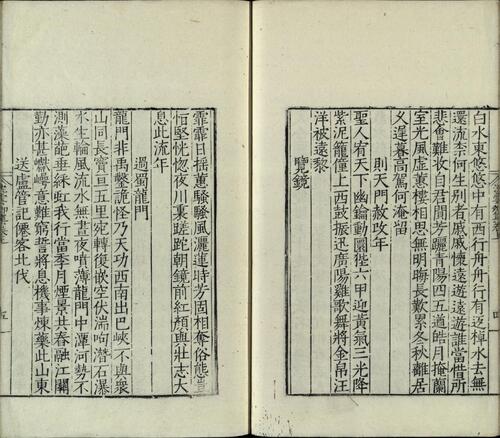 白水東悠悠中有西行舟舟行有返棹水去無
還流李何生别者戚戚懷遠遊遠遊誰當惜所
悲會難收自君間芳躧青陽四五遒皓月掩蘭
室光風虛蕙樓相思無明晦長歎累冬秋離居
久遲暮高駕何淹留
則天門赦改年
聖人宥天下幽鑰動圜狴六甲迎黃氣三光降
紫泥籠僮上西鼓振迅廣陽雞歌舞將金帛汪
洋被遠黎
覽鏡
四
霏霏日搖蕙騷騷風灑蓮時芳固相奪俗態豈
恒堅恍惚夜川裏蹉跎朝鏡前紅顏與壯志大
息此流年
過蜀龍門
龍門非禹鑿詭怪乃天功西南出巴峽不與衆
山同長竇亘五里宛轉復嵌空伏湍呴潛石瀑
水生輪風流水無晝夜噴薄龍門中潭河勢不
測藻葩垂綵虹我行當季月煙景共春融江關
勤亦甚巘崿意難窮誓將息機事煉藥此山東
送盧管記僊客北伐
五